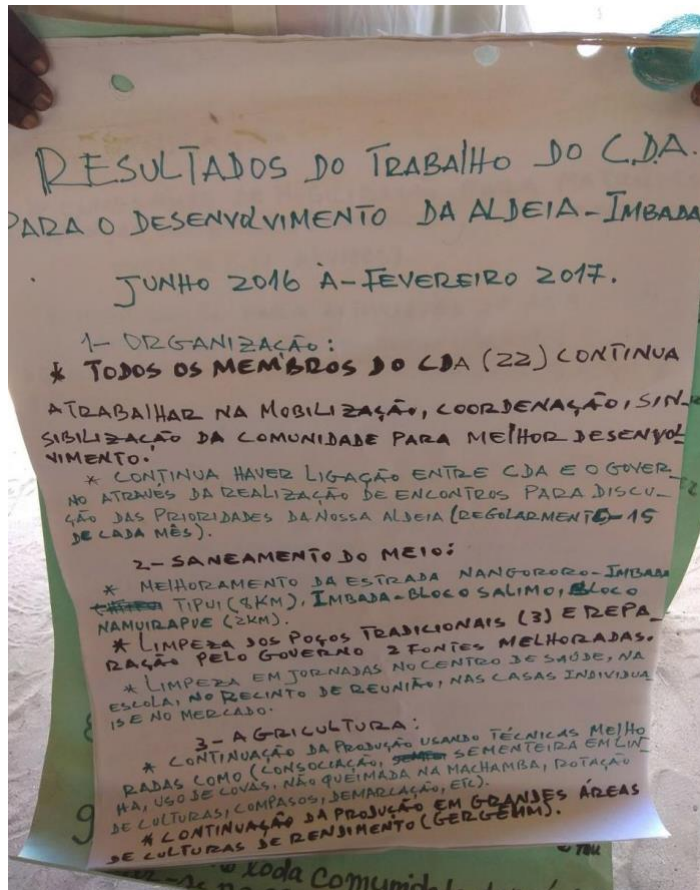 RESULTADOS DO TRABALHO DO C.D.A.
PARA O DESENVOLVIMENTO DA ALDEIA-IMBADA
JUNHO 2016 À-FEVEREIRO 2017.
1- ORGANIZAÇÃO:
* TODOS OS MEMBROS DO CDA (22) CONTINUA
A TRABALHAR NA MOBILIZAÇÃO, COORDENAÇÃO, SIN-
SIBILIZAÇÃO DA COMUNIDADE PARA MELHOR DESENVOL-
VIMENTO.
* CONTINUA HAVER LIGAÇÃO ENTRE CDA E O GOVER-
NO ATRAVES DA REALIZAÇÃO DE ENCONTROS PARA DISCU-
ÇÃO DAS PRIORIDADES DA NOSSA ALDEIA (REGOLARMENTE-15
DE CADA MÊS).
2- SANEAMENTO DO MEIO:
* MELHORAMENTO DA ESTRADA NANGORORO-IMBADA
TIPUI (8KM), IMBADA-BLOCO SALIMO, BLOCO
NAMUIRAPUE (2KM).
* LIMPEZA DOS POÇOS TRADICIONAIS (3) E REPA-
RAÇÃO PELO GOVERNO 2 FONTES MELHORADAS.
* LIMPEZA EM JORNADAS NO CENTRO DE SAÚDE, NA
ESCOLA, NO RECINTO DE REUNIÃO, NAS CASAS INDIVIDUA
IS E NO MERCADO.
3- AGRICULTURA:
* CONTINUAÇÃO DA PRODUÇÃO USANDO TÉCNICAS MELHO
RADAS COMO (CONSOCIAÇÃO, SEMENTEIRA EM LIN-
HA, USO DE COVAS, NÃO QUEIMADA NA MACHAMBA, ROTAÇÃO
DE CULTURAS, COMPASOS, DEMARCAÇÃO, ETC).
* CONTINUAÇÃO DA PRODUÇÃO EM GRANDES ÁREAS
DE CULTURAS DE RENDIMENTO (GERGEMM).
9
toda comunid